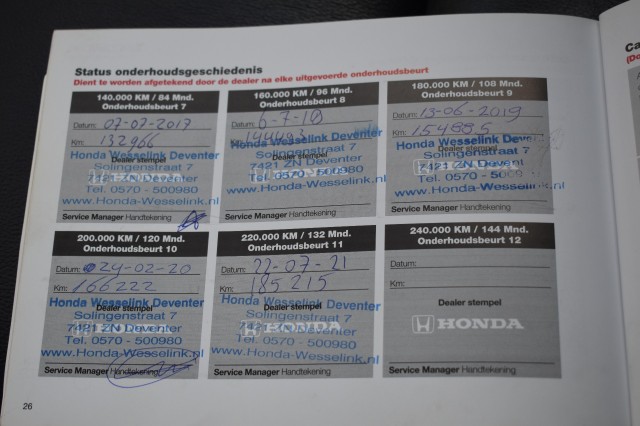 Status onderhoudsgeschiedenis
Dient te worden afgetekend door de dealer na elke uitgevoerde onderhoudsbeurt
140.000 KM / 84 Mnd.
Onderhoudsbeurt 7
Datum: 07-07-2017
Km: 132966
Honda Wesselink Deventer
Dealer stempel
Solingenstraat 7
7421 ZN Deventer
Tel. 0570 - 500980
www.Honda-Wesselink.nl
Service Manager Handtekening
160.000 KM / 96 Mnd.
Onderhoudsbeurt 8
Datum: 6-7-18
Km: 144493
Honda Wesselink Deventer
Dealer stempel
Solingenstraat 7
7421 ZN Deventer
Tel. 0570 - 500980
www.Honda-Wesselink.nl
Service Manager Handtekening
180.000 KM / 108 Mnd.
Onderhoudsbeurt 9
Datum: 13-06-2019
Km: 154885
Honda Wesselink Deventer
Dealer stempel
Solingenstraat 7
7421 ZN Deventer
Tel. 0570 - 5009
www.Honda-Wesselink.nl
Service Manager Handtekening
200.000 KM / 120 Mnd.
Onderhoudsbeurt 10
Datum: 24-02-20
Km: 166222
Honda Wesselink Deventer
Dealer stempel
Solingenstraat 7
HONDA
7421 ZN Deventer
Tel. 0570 - 500980
www.Honda-Wesselink.nl
Service Manager Handtekening
220.000 KM / 132 Mnd.
Onderhoudsbeurt 11
Datum: 22-07-21
Km: 185215
Honda Wesselink Deventer
Dealer stempel
Solingenstraat 7
HONDA
7421 ZN Deventer
Tel. 0570 - 500980
www.Honda-Wesselink.nl
Service Manager Handtekening
240.000 KM / 144 Mnd.
Onderhoudsbeurt 12
Datum:
Km:
Dealer stempel
HONDA
Service Manager Handtekening
26